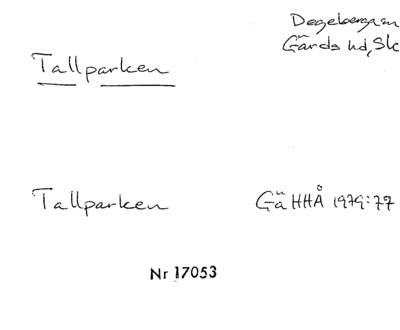 Degeberga sn
Gärds hd, Sk
Tallparken
Tallparken
GäHHÅ 1979:77
Nr 17053